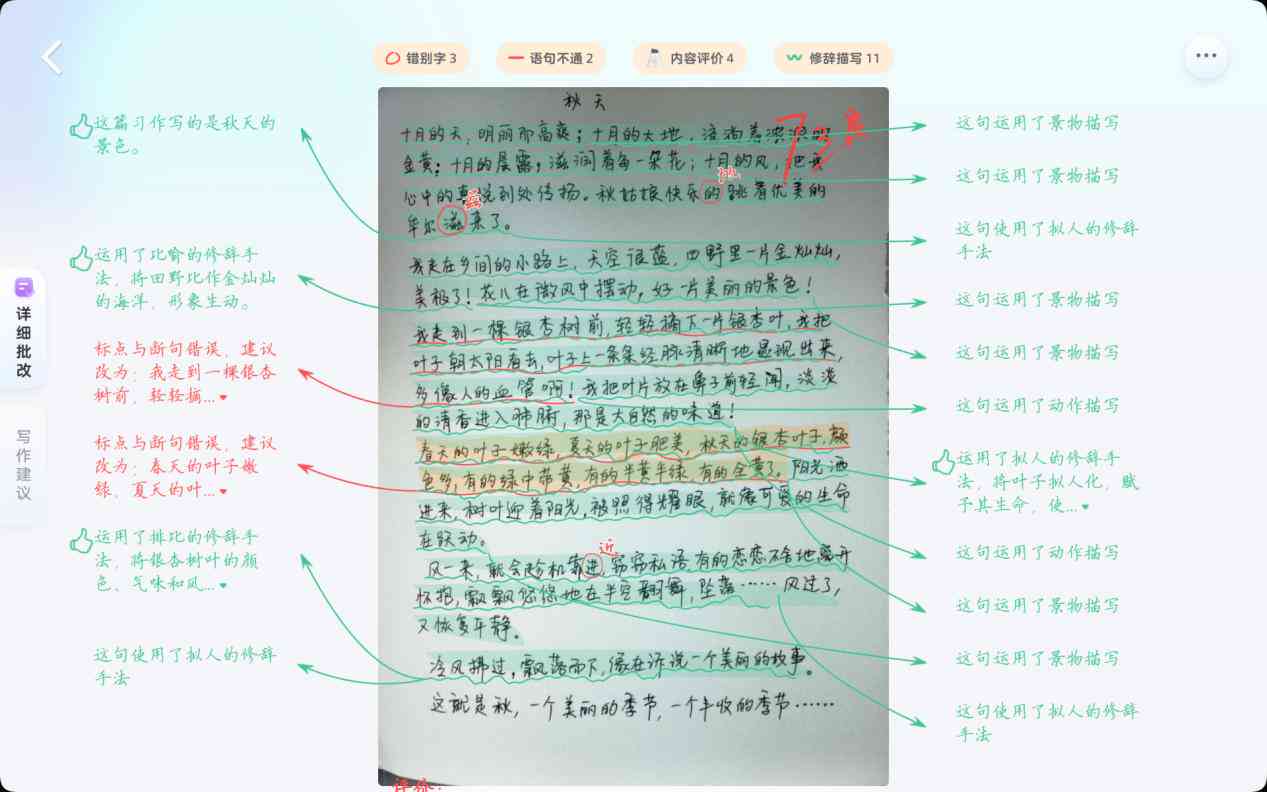 错别字 3
语句不通 2
内容评价 4
修辞描写 11
详细批改
写作建议
这篇习作写的是秋天的
景色。
运用了比喻的修辞手
法，将田野比作金灿灿
的海洋，形象生动。
标点与断句错误，建议
改为：我走到一棵银杏
树前，轻轻摘...
标点与断句错误，建议
改为：春天的叶子嫩
绿，夏天的叶...
运用了排比的修辞手
法，将银杏树叶的颜
色、气味和风...
这句使用了拟人的修辞
手法
秋天
十月的天，明丽而高爽；十月的大地，流淌着浓浓的
金黄；十月的晨露，滋润着每一朵花；十月的风，把我
心中的喜悦到处传扬。秋姑娘快乐的跳着优美的
华尔滋来了。
我走在乡间的小路上，天空很蓝，四野里一片金灿灿，
美极了！花儿在微风中摆动，好一片美丽的景色！
我走到一棵银杏树前，轻轻摘下一片银杏叶，我把
叶子朝太阳看去，叶子上一条条经脉清晰地显现出来，
多像人的血管啊！我把叶片放在鼻子前轻闻，淡淡
的清香进入肺腑，那是大自然的味道！
春天的叶子嫩绿，夏天的叶子肥美，秋天的银杏叶子，颜
色多，有的绿中带黄，有的半黄半绿，有的全黄了。阳光洒
进来，树叶迎着阳光，被照得耀眼，就像可爱的生命
在跃动。
风一来，就会趁机靠进，窃窃私语，有的恋恋不舍地离开
怀抱，飘飘悠悠地在半空翻舞，坠落……风过了，
又恢复平静。
冷风拂过，飘落而下，像在诉说一个美丽的故事。
这就是秋，一个美丽的季节，一个丰收的季节……
近
评脉：
这句运用了景物描写
这句运用了景物描写
这句使用了拟人的修辞
手法
这句运用了景物描写
这句运用了景物描写
这句运用了动作描写
运用了拟人的修辞手
法，将叶子拟人化，赋
予其生命，使...
这句运用了动作描写
这句运用了景物描写
这句运用了景物描写
这句使用了拟人的修辞
手法